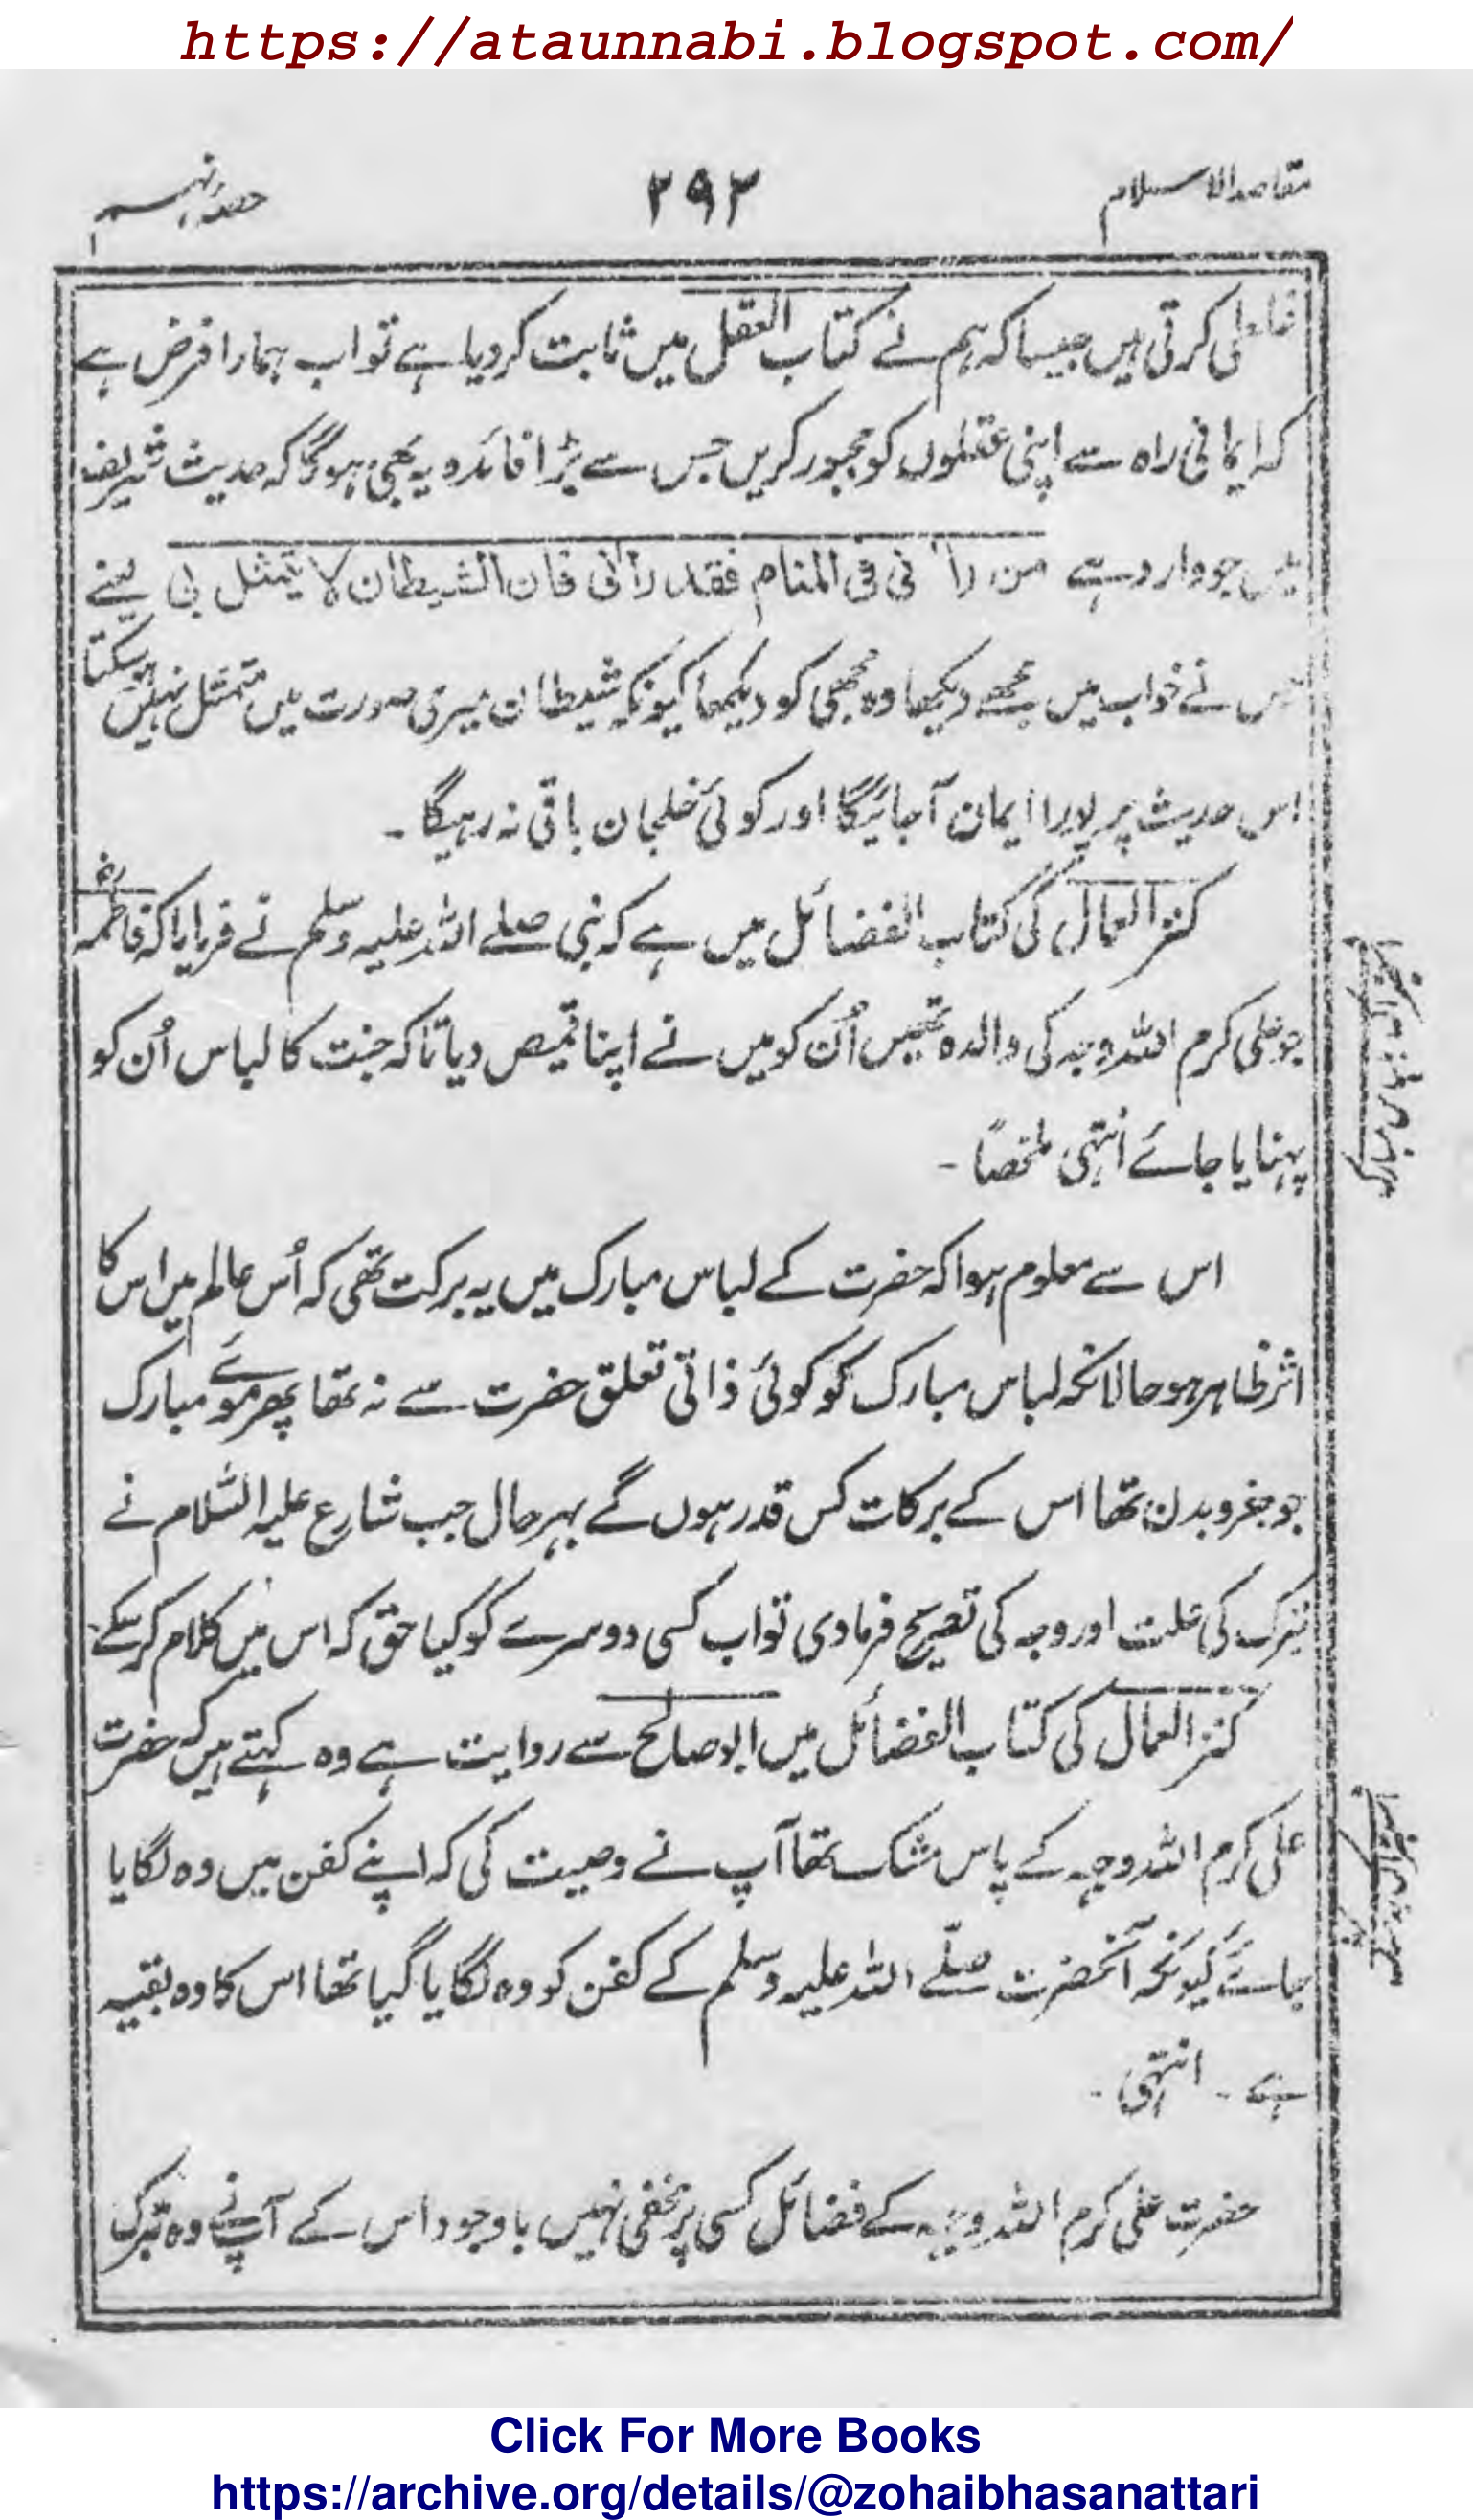 https://ataunnabi.blogspot.com/
مقاصد الاسلام
۲۹۲
حصۂ نہم
غلطی کرتی ہیں جیسا کہ ہم نے کتاب العقل میں ثابت کردیا ہے تو اب ہمارا فرض ہے
کہ ایمانی راہ سے اپنی عقلوں کو مجبور کریں جس سے بڑا فائدہ یہ بھی ہوگا کہ حدیث شریف
میں جو وارد ہے من رآنی فی المنام فقد رآنی فان الشیطان لا یتمثل بی یعنے
جس نے خواب میں مجھے دیکھا وہ مجھی کو دیکھا کیونکہ شیطان میری صورت میں متمثل نہیں ہوسکتا
اس حدیث پر پورا ایمان آجائیگا اور کوئی خلجان باقی نہ رہیگا ۔
کنز العمال کی کتاب الفضائل میں ہے کہ نبی صلے اللہ علیہ وسلم نے فرمایا کہ فاطمہؓ
جو علی کرم اللہ وجہہ کی والدہ تھیں اُن کو میں نے اپنا قمیص دیا تاکہ جنت کا لباس اُن کو
پہنایا جائے انتہی ملخصاً ۔
اس سے معلوم ہوا کہ حضرت کے لباس مبارک میں یہ برکت تھی کہ اُس عالم میں اس کا
اثر ظاہر ہو حالانکہ لباس مبارک کو کوئی ذاتی تعلق حضرت سے نہ تھا پھر موئے مبارک
جو جزو بدن تھا اس کے برکات کس قدر ہوں گے بہرحال جب شارع علیہ السّلام نے
تبرک کی علت اور وجہ کی تصریح فرمادی تو اب کسی دوسرے کو کیا حق کہ اس میں کلام کرسکے۔
کنز العمال کی کتاب الفضائل میں ابو صالح سے روایت ہے وہ کہتے ہیں کہ حضرت
علی کرم اللہ وجہہ کے پاس مشک تھا آپ نے وصیت کی کہ اپنے کفن میں وہ لگایا
جائے کیونکہ آنحضرت صلّے اللہ علیہ وسلم کے کفن کو وہ لگایا گیا تھا اس کا وہ بقیہ
ہے ۔ انتہی ۔
حضرت علی کرم اللہ وجہہ کے فضائل کسی پر مخفی نہیں باوجود اس کے آپ نے وہ تبرک
Click For More Books
https://archive.org/details/@zohaibhasanattari